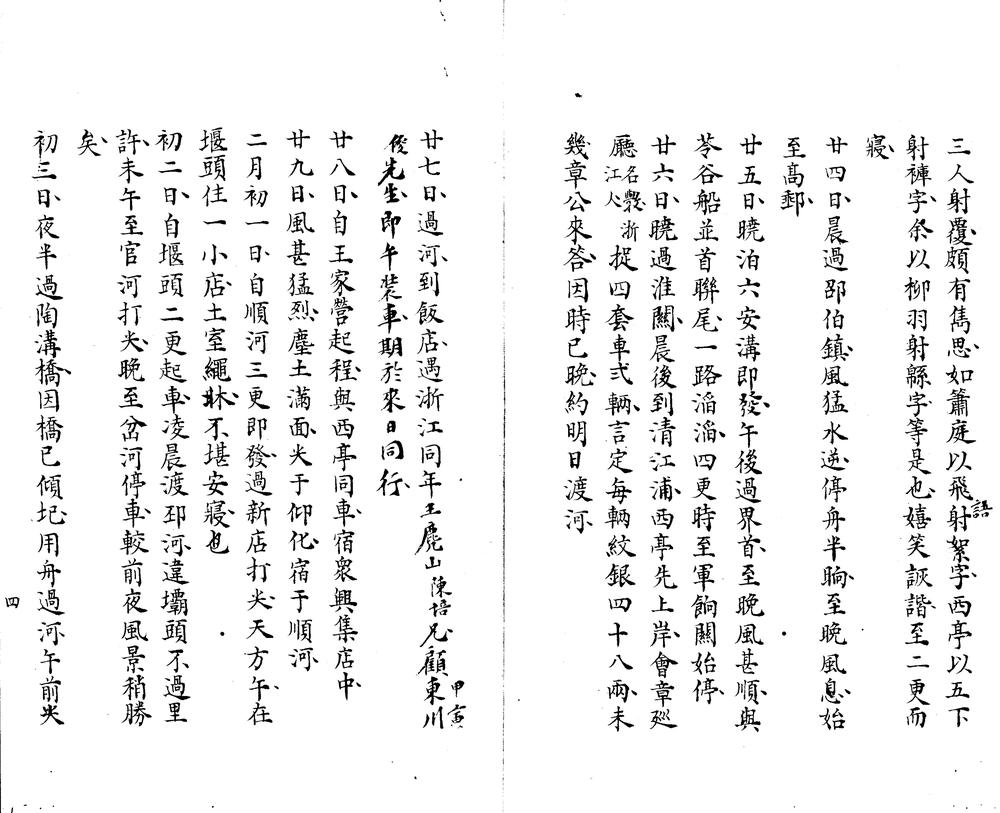 三人射覆頗有雋思如簫庭以飛射絮字西亭以五下
語
射褲字余以柳羽射緜字等是也嬉笑詼諧至二更而
寢
廿四日晨過邵伯鎮風猛水逆停舟半晌至晚風息始
至高郵
廿五日曉泊六安溝即發午後過界首至晚風甚順與
苓谷船並首聯尾一路滔滔四更時至軍餉關始停
廿六日曉過淮關晨後到清江浦西亭先上岸會章巡
廳名瑴浙江人捉四套車弍輛言定每輛紋銀四十八兩未
幾章公來答因時已晚約明日渡河
廿七日過河到飯店遇浙江同年王麓山陳培兄顧東川
甲寅
後先生即午裝車期於來日同行
廿八日自王家營起程與西亭同車宿衆興集店中
廿九日風甚猛烈塵土滿面尖于仰化宿于順河
二月初一日自順河三更即發過新店打尖天方午在
堰頭住一小店土室繩牀不堪安寢也
初二日自堰頭二更起車凌晨渡邳河違壩頭不過里
許未午至官河打尖晚至岔河停車較前夜風景稍勝
矣
初三日夜半過陶溝橋因橋已傾圮用舟過河午前尖
四